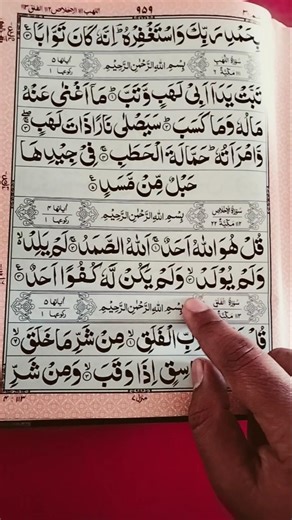 اللهب ١١١ الاخلاص ١١٢ الفلق ١١٣
٩٥٩
بِحَمْدِ رَبِّكَ وَاسْتَغْفِرْهُ ؕ اِنَّهٗ كَانَ تَوَّابًا
سُوْرَةُ اللَّهَبِ مَكِّيَّةٌ
بِسْمِ اللّٰهِ الرَّحْمٰنِ الرَّحِيْمِ
اٰيَاتُهَا ٥ رُكُوْعُهَا ١
تَبَّتْ يَدَاۤ اَبِيْ لَهَبٍ وَّتَبَّ ؕ مَاۤ اَغْنٰى عَنْهُ
مَالُهٗ وَمَا كَسَبَ ؕ سَيَصْلٰى نَارًا ذَاتَ لَهَبٍ
وَّامْرَاَتُهٗ ؕ حَمَّالَةَ الْحَطَبِ ۚ فِيْ جِيْدِهَا
حَبْلٌ مِّنْ مَّسَدٍ
سُوْرَةُ الْاِخْلَاصِ مَكِّيَّةٌ ٢٢
بِسْمِ اللّٰهِ الرَّحْمٰنِ الرَّحِيْمِ
اٰيَاتُهَا ٤ رُكُوْعُهَا ١
قُلْ هُوَ اللّٰهُ اَحَدٌ ۚ اَللّٰهُ الصَّمَدُ ۚ لَمْ يَلِدْ ۙ
وَلَمْ يُوْلَدْ ۙ وَلَمْ يَكُنْ لَّهٗ كُفُوًا اَحَدٌ
سُوْرَةُ الْفَلَقِ مَكِّيَّةٌ
بِسْمِ اللّٰهِ الرَّحْمٰنِ الرَّحِيْمِ
اٰيَاتُهَا ٥ رُكُوْعُهَا ١
قُلْ بِّ الْفَلَقِ ۙ مِنْ شَرِّ مَا خَلَقَ ۙ
سِقٍ اِذَا وَقَبَ ۙ وَمِنْ شَرِّ
منزل ٧